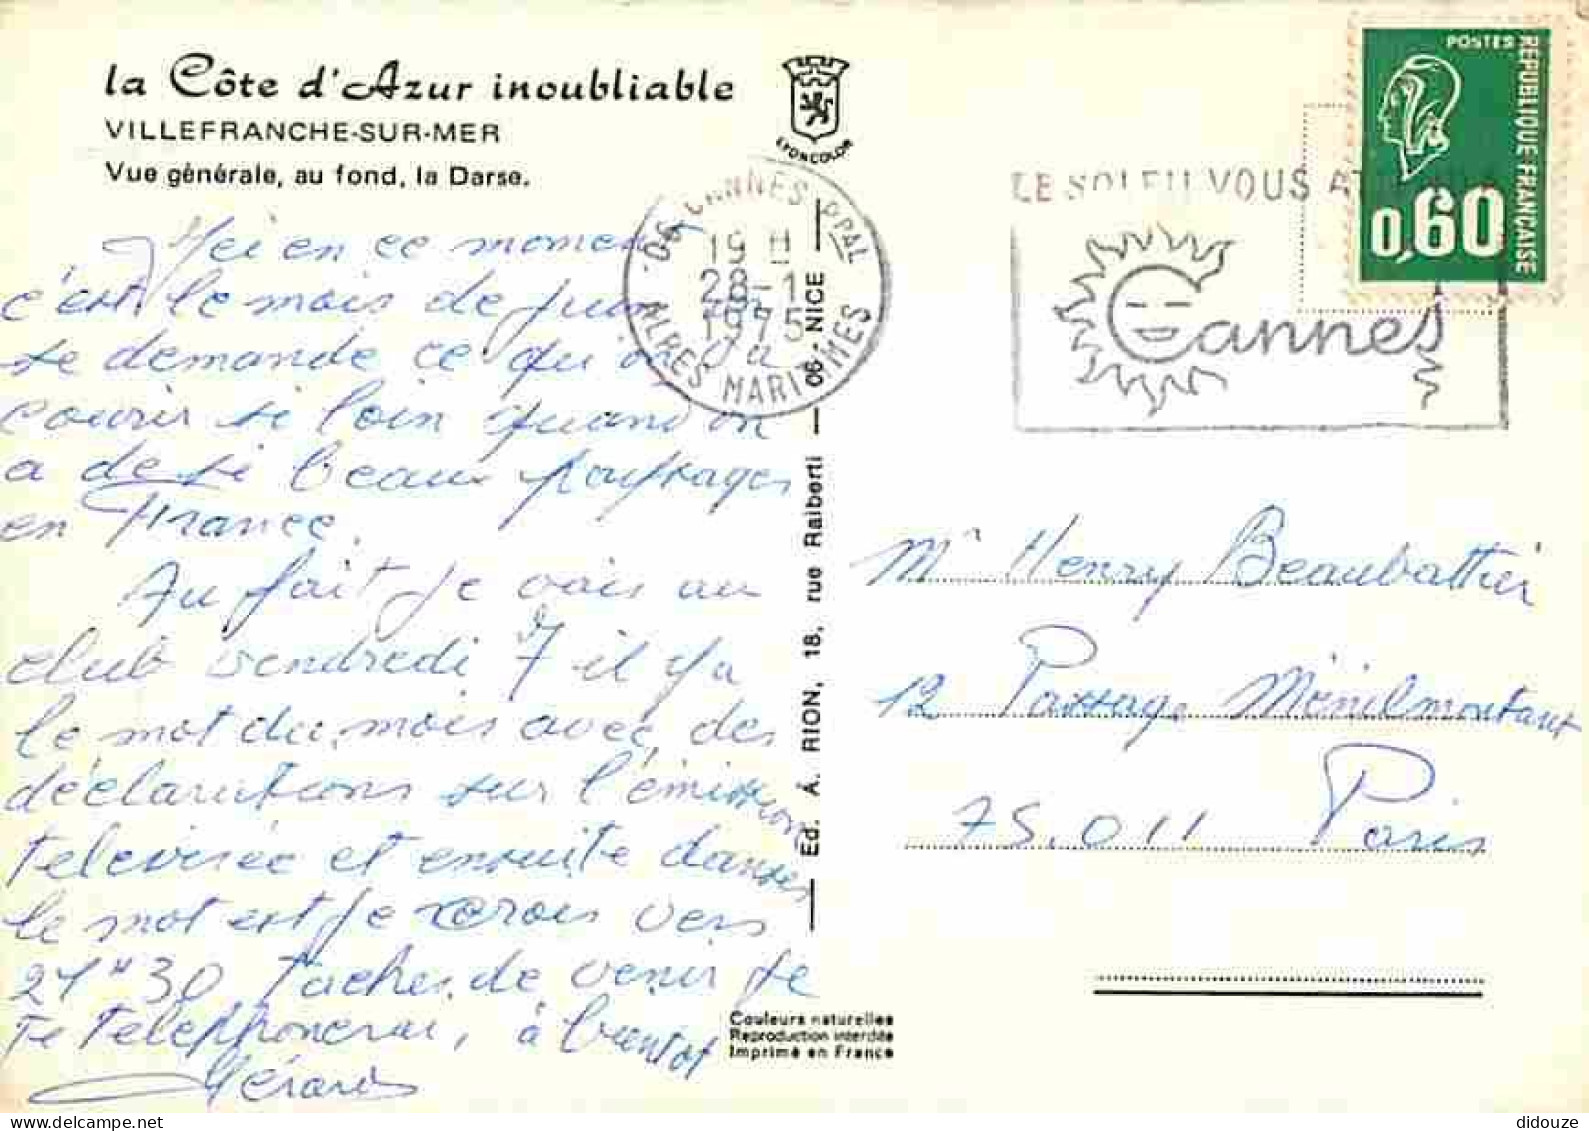 la Côte d'Azur inoubliable
VILLEFRANCHE-SUR-MER
Vue générale, au fond, la Darse.
LYONCOLOR
Ici en ce moment
c'est le mois de juin
se demande ce qu'on va
courir si loin quand on
a de si beaux paysages
en France.
Au fait je vais au
club vendredi 7 il y a
le mot du mois avec des
déclarations sur l'émission
televisée et ensuite danses
le mot est je serois vers
21H30 Taches de venir je
te telephonerai, à bientot
Gérard
06 CANNES PPAL
19 H
28-1
1975
ALPES MARITIMES
Ed. A. RION, 18, rue Raiberti — 06 - NICE
Couleurs naturelles
Reproduction interdite
Imprimé en France
LE SOLEIL VOUS
Cannes
POSTES
REPUBLIQUE FRANÇAISE
0,60
Mr Henry Beaubattier
12 Passage Ménilmontant
75.011 Paris
didouze